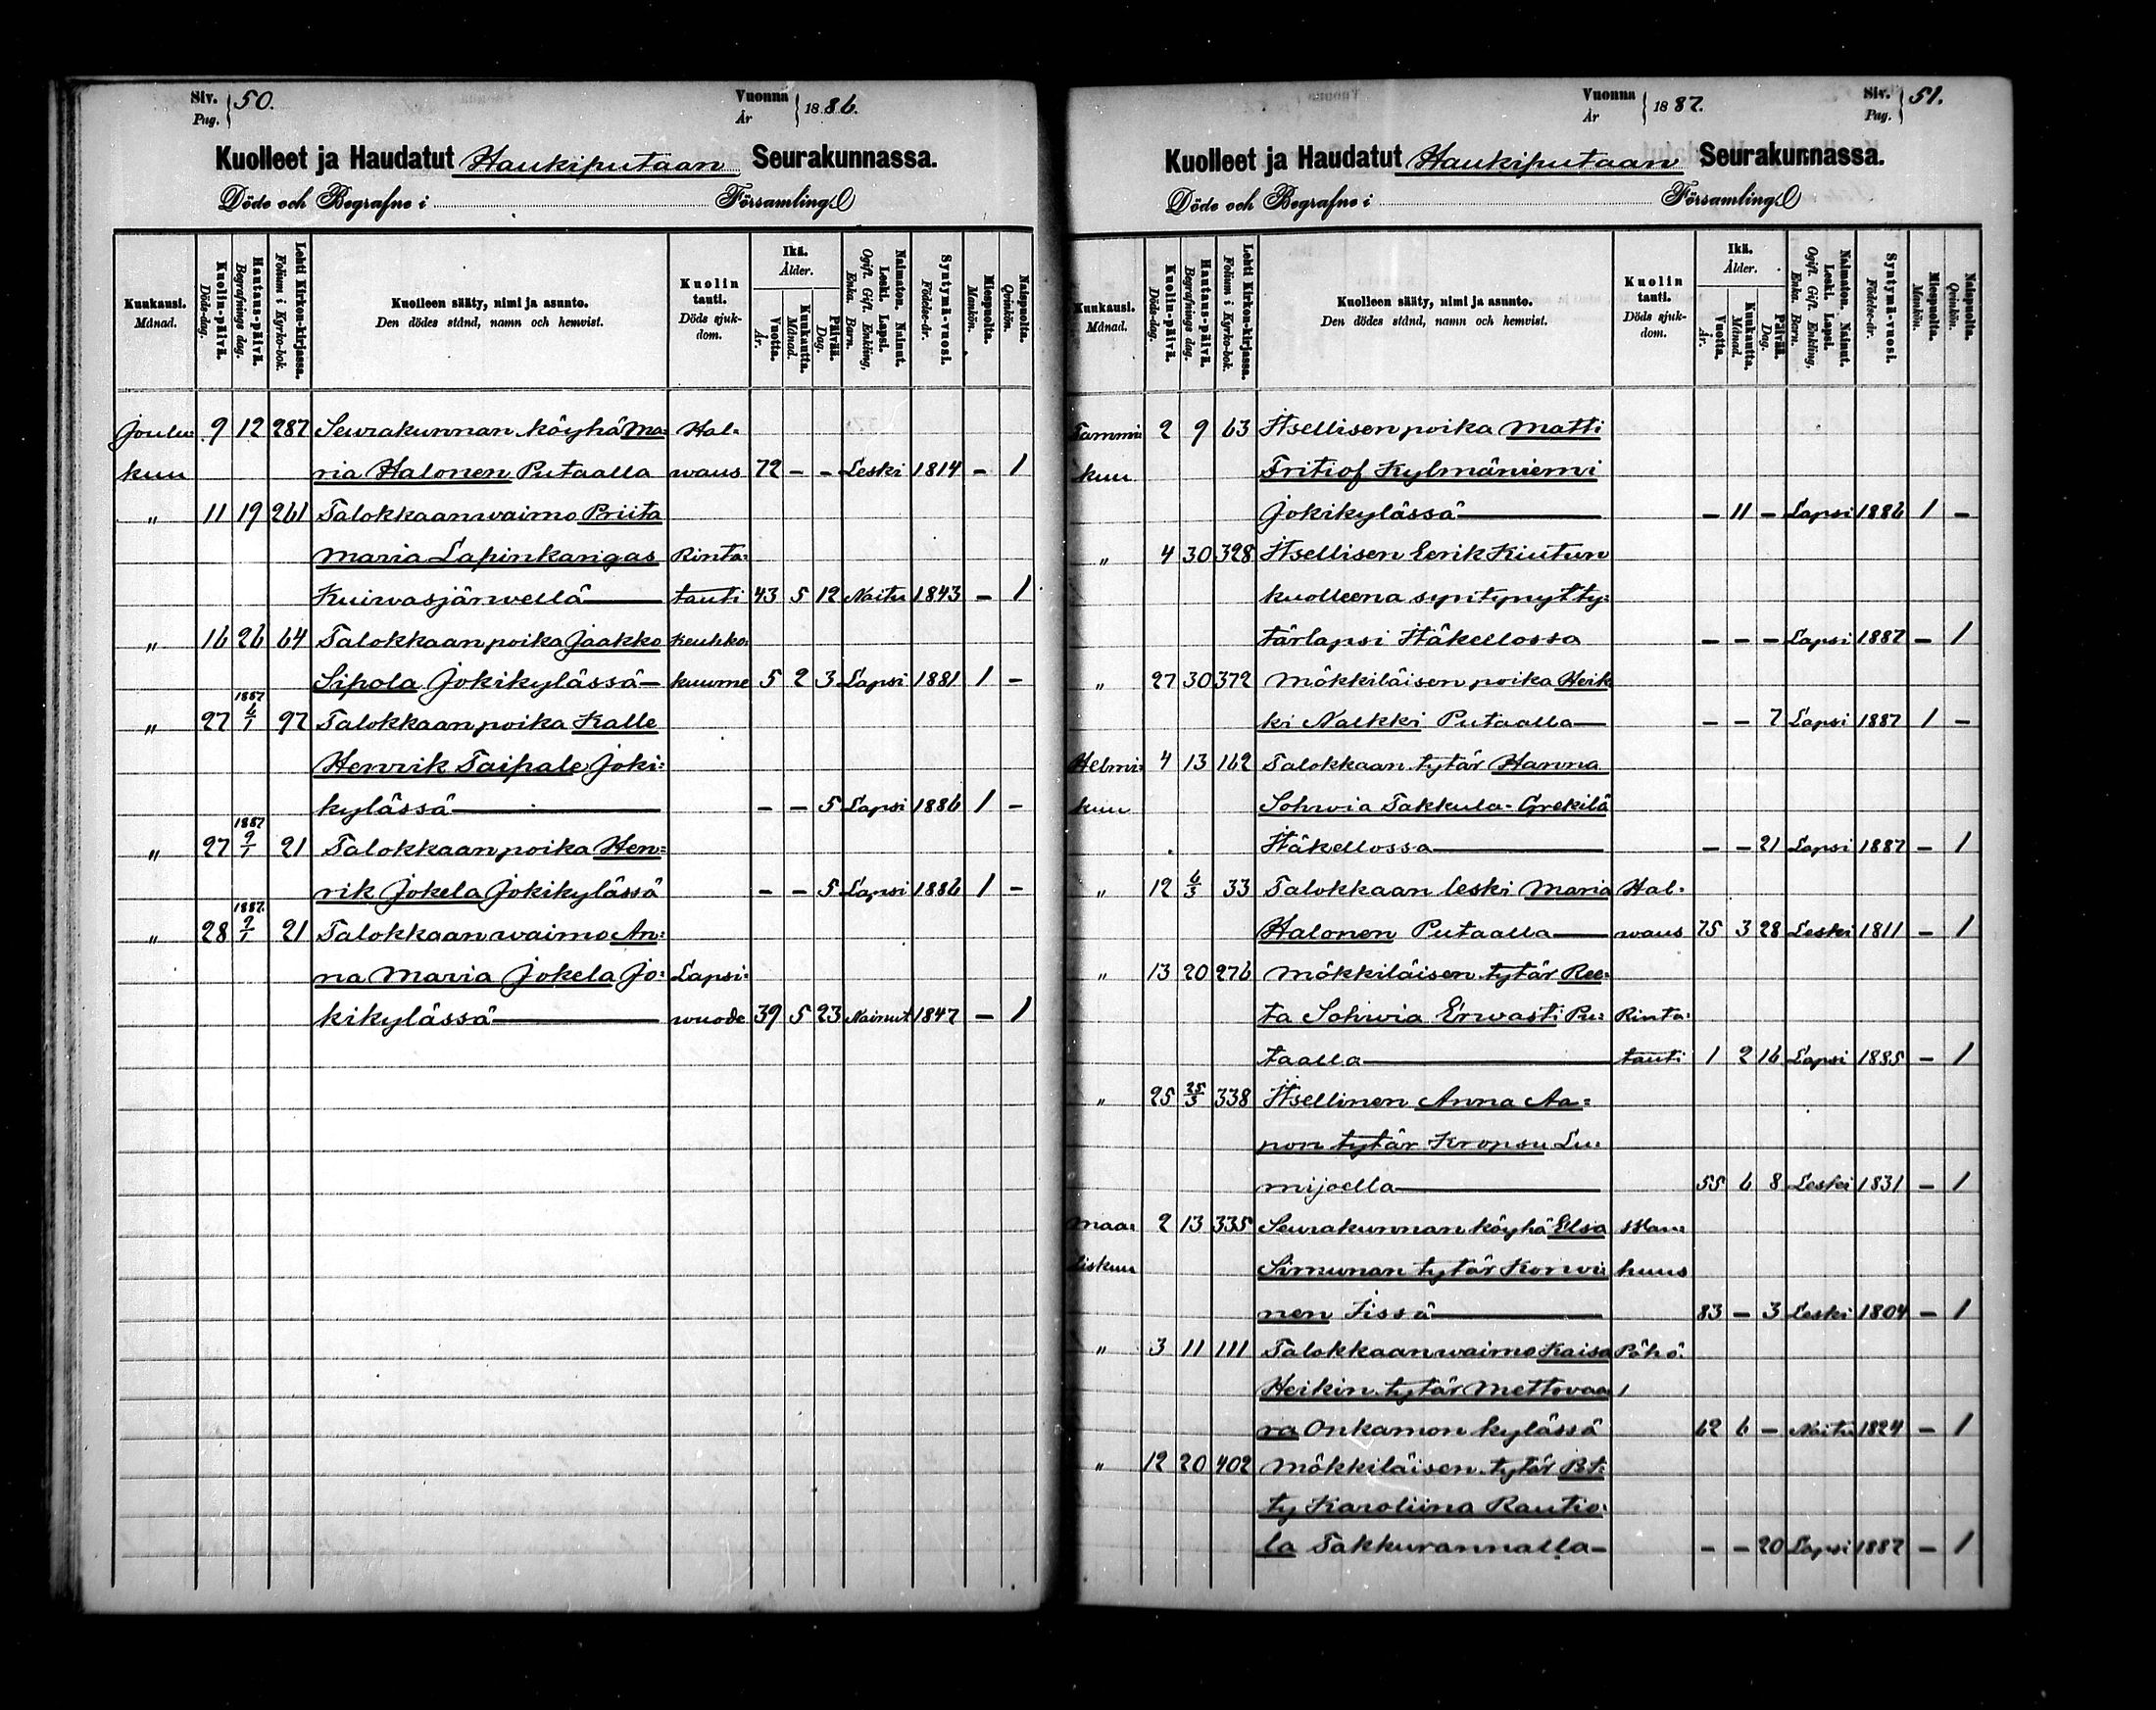 Siv. Pag. } 50.
Vuonna År } 1886.
Kuolleet ja Haudatut Haukiputaan Seurakunnassa.
Döde och Begrafne i Församling
Kuukausi. Månad.
Kuolin-päivä. Döds-dag.
Hautaus-päivä. Begrafnings dag.
Lehti Kirkon-kirjassa. Folium i Kyrko-bok.
Kuolleen sääty, nimi ja asunto. Den dödes stånd, namn och hemvist.
Kuolin tauti. Döds sjuk-dom.
Ikä. Ålder.
Vuotta. År.
Kuukautta. Månad.
Päivää. Dag.
Naimaton. Nainut. Leski. Lapsi. Ogift. Gift. Enkling, Enka. Barn.
Syntymä-vuosi. Födelse-år.
Miespuolta. Mankön.
Naispuolta. Qvinkön.
Joulu- 9 12 287 Seurakunnan köyhä Ma= Hal=
kuu ria Halonen Putaalla waus 72 - - Leski 1814 - 1
" 11 19 261 Talokkaan waimo Priita
Maria Lapinkangas Rinta=
Kuiwasjärwellä tauti 43 5 12 Naitu 1843 - 1
" 16 26 64 Talokkaan poika Jaakko Keuhko=
Sipola Jokikylässä kuume 5 2 3 Lapsi 1881 1 -
" 27 1887 6/1 97 Talokkaan poika Kalle
Henrik Taipale Joki=
kylässä - - 5 Lapsi 1886 1 -
" 27 1887 9/1 21 Talokkaan poika Hen=
rik Jokela Jokikylässä - - 5 Lapsi 1886 1 -
" 28 1887. 9/1 21 Talokkaan waimo An=
na Maria Jokela Jo= Lapsi=
kikylässä wuode 39 5 23 Nainut 1847 - 1
Vuonna År } 1887.
Siv. Pag. } 51.
Kuolleet ja Haudatut Haukiputaan Seurakunnassa.
Döde och Begrafne i Församling
Kuukausi. Månad.
Kuolin-päivä. Döds-dag.
Hautaus-päivä. Begrafnings dag.
Lehti Kirkon-kirjassa. Folium i Kyrko-bok.
Kuolleen sääty, nimi ja asunto. Den dödes stånd, namn och hemvist.
Kuolin tauti. Döds sjuk-dom.
Ikä. Ålder.
Vuotta. År.
Kuukautta. Månad.
Päivää. Dag.
Naimaton. Nainut. Leski. Lapsi. Ogift. Gift. Enkling, Enka. Barn.
Syntymä-vuosi. Födelse-år.
Miespuolta. Mankön.
Naispuolta. Qvinkön.
Tammi= 2 9 63 Itsellisen poika Matti
kuu Fritiof Kylmäniemi
Jokikylässä - 11 - Lapsi 1886 1 -
" 4 30 328 Itsellisen Eerik Kiutun
kuolleena syntynyt ty=
tärlapsi Häkellossa - - - Lapsi 1887 - 1
" 27 30 372 Mökkiläisen poika Heik
ki Nalkki Putaalla - - 7 Lapsi 1887 1 -
Helmi= 4 13 162 Talokkaan tytär Hanna
kuu Sohwia Takkula-Grekilä
Häkellossa - - 21 Lapsi 1887 - 1
" 12 6/3 33 Talokkaan leski Maria Hal=
Halonen Putaalla waus 75 3 28 Leski 1811 - 1
" 13 20 276 Mökkiläisen tytär Ree=
ta Sohwia Erwasti Pu= Rinta=
taalla tauti 1 2 16 Lapsi 1885 - 1
" 25 25/3 338 Itsellinen Anna Aa=
pon tytär Kropsu Lu=
mijoella 55 6 8 Leski 1831 - 1
Maa= 2 13 335 Seurakunnan köyhä Elsa Wan=
liskuu Simunan tytär Konwi= huus
nen Iissä 83 - 3 Leski 1804 - 1
" 3 11 111 Talokkaan waimo Kaisa Pöhö=
Heikin tytär Mettovaa
ra Onkamon kylässä 62 6 - Naitu 1824 - 1
" 12 20 402 Mökkiläisen tytär Bet=
ty Karoliina Rautio=
la Takkurannalla - - 20 Lapsi 1887 - 1